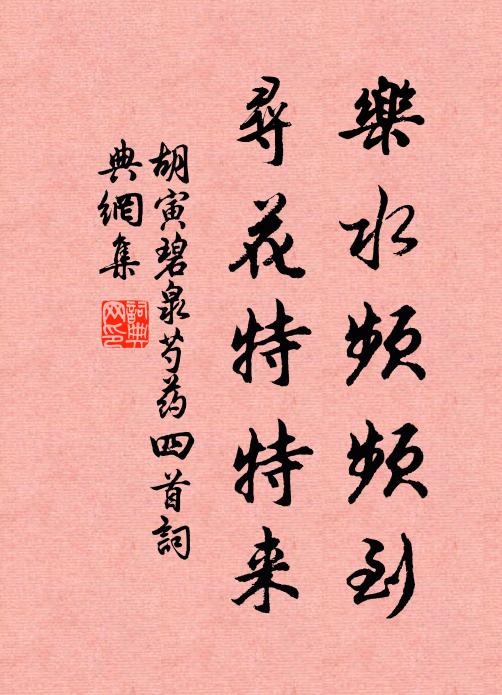 樂水頻頻到
尋花特特来
胡寅碧泉芍药四首詞
典網集
詞典
网印